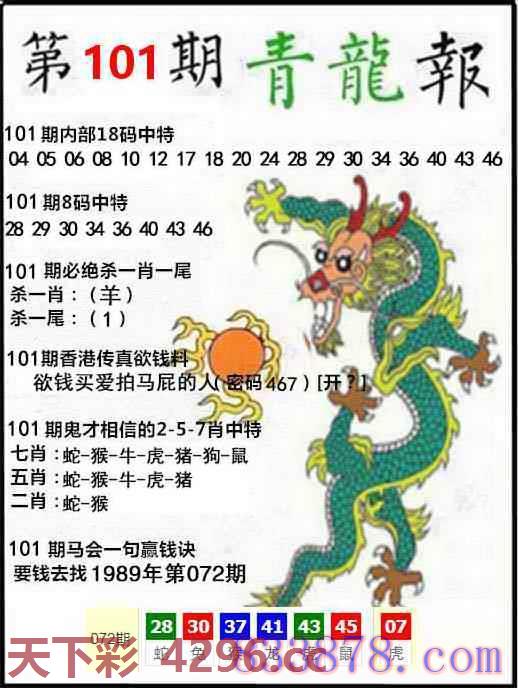 第101期 青龍報
101期内部18码中特
04 05 06 08 10 12 17 18 20 24 28 29 30 34 36 40 43 46
101期8码中特
28 29 30 34 36 40 43 46
101期必绝杀一肖一尾
杀一肖：（羊）
杀一尾：（1）
101期香港传真欲钱料
欲钱买爱拍马屁的人(密码467)[开？]
101期鬼才相信的2-5-7肖中特
七肖：蛇-猴-牛-虎-猪-狗-鼠
五肖：蛇-猴-牛-虎-猪
二肖：蛇-猴
101期马会一句赢钱诀
要钱去找1989年第072期
072期 28 30 37 41 43 45 07
蛇 兔 猴 龙 虎 鼠 虎
天下彩 4296.cc
3878.com